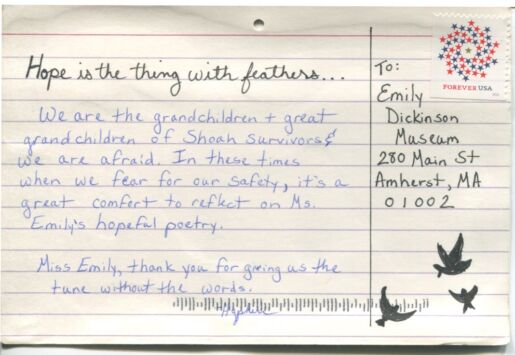 Hope is the thing with feathers...
We are the grandchildren + great
grandchildren of Shoah survivors &
we are afraid. In these times
when we fear for our safety, it's a
great comfort to reflect on Ms.
Emily's hopeful poetry.
Miss Emily, thank you for giving us the
tune without the words.
FOREVER USA
To:
Emily
Dickinson
Museum
280 Main St
Amherst, MA
01002